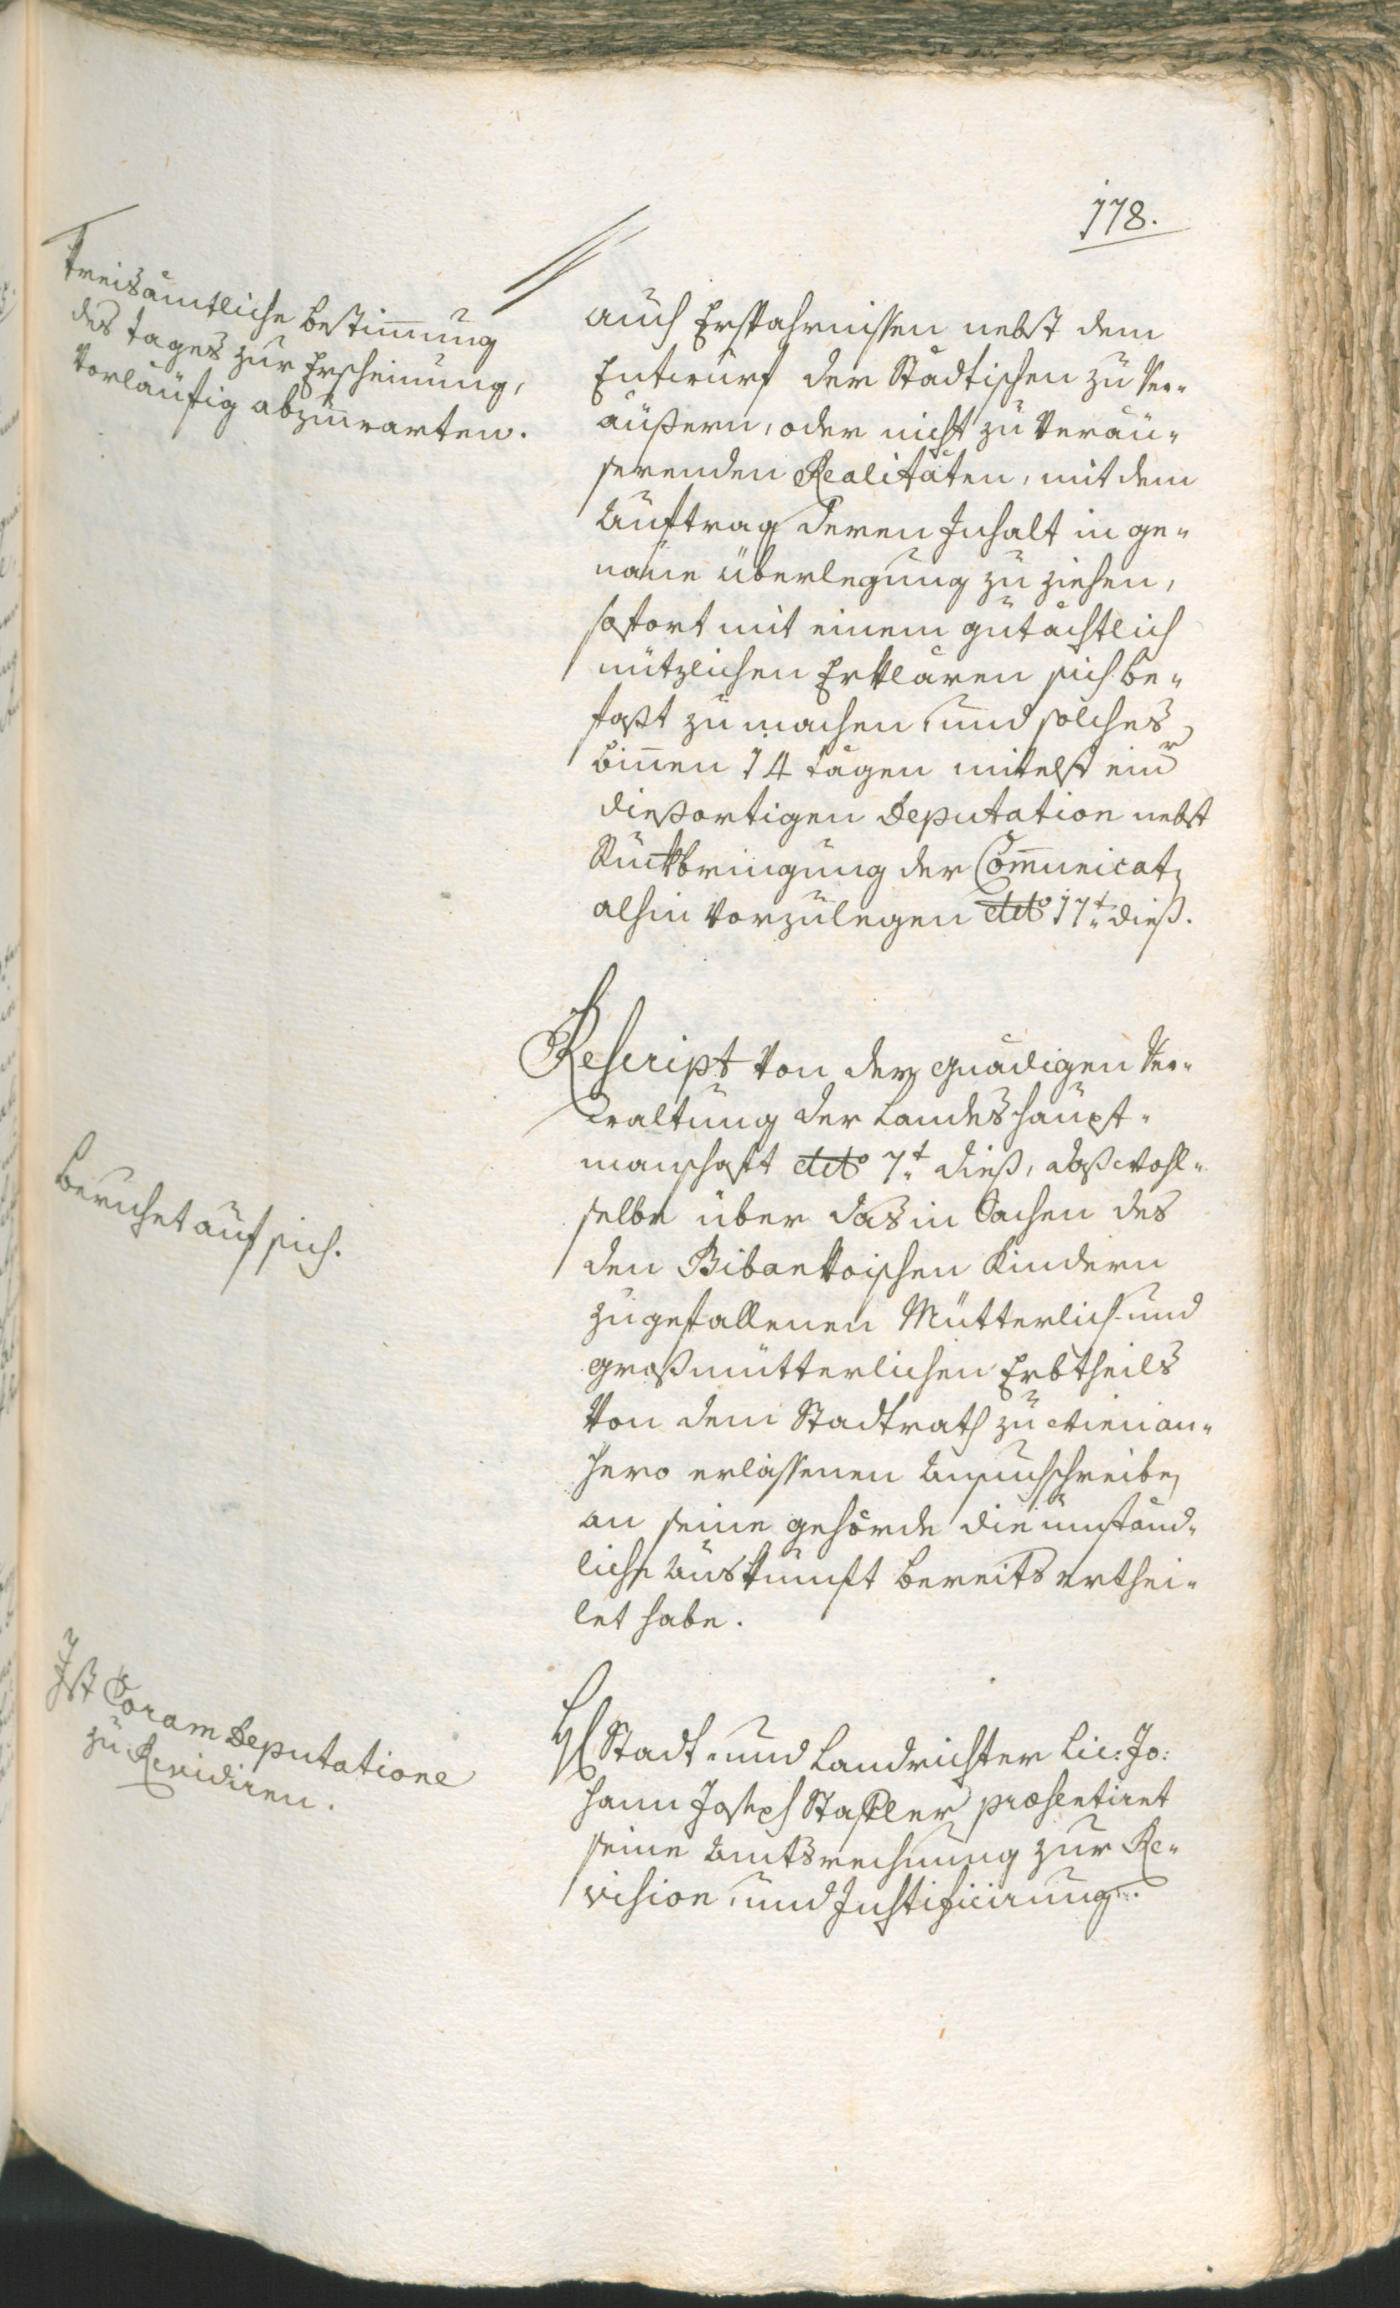 178.
kreisämtliche bestim̅ung
des tages zur Erscheinung,
vorläufig abzuwarten.
auch Ersparnissen nebst dem
Entwurf der Städtischen zu ver-
äußern, oder nicht zu veräu-
serenden Realitäten, mit dem
Auftrag deren Inhalt in ge-
naue überlegung zu ziehen,
sofort mit einem gutächtlich
nützlichen Erklären sich be-
faßt zu machen, und solches
bin̅en 14 tägen mitelst einr
dießortigen Deputation nebst
Rückbringung der Com̅unicat
alhin vorzulegen ddto 17t dieß.
Rescript von der gnädigen Ver-
waltung der Landeshaupt-
manschaft ddto 7t dieß, daß wohl-
selbe über das in Sachen des
den Bibankoischen Kindern
zugefallenen Mütterlich- und
großmütterlichen Erbtheils
von dem Stadtrath zu Wien an-
hero erlassenen Ansuchschreiben
an seine gehörde die umständ-
liche Auskunft bereits erthei-
let habe.
beruhet auf sich.
H Stadt- und Landrichter Lic: Jo:
hann Joseph Stapler præsentiret
seine Amtsrechnung zur Re-
vision, und Justificirung.
Ist Coram Deputatione
zu Revidiren.